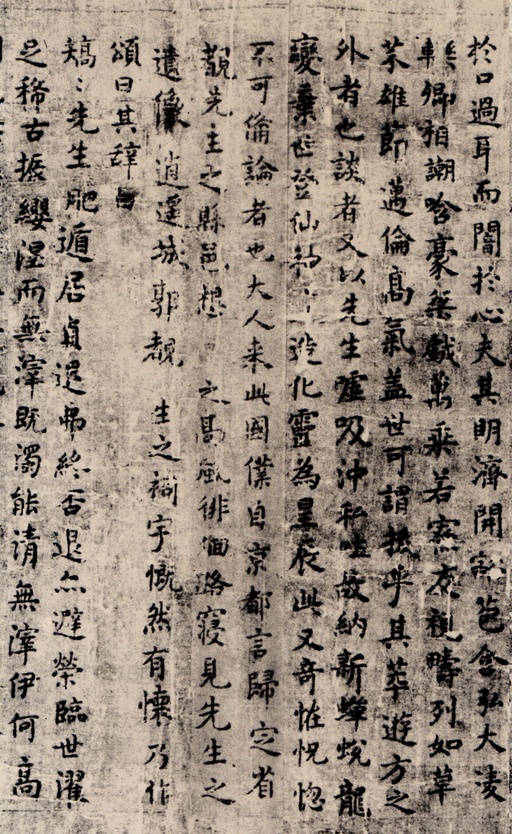 於口過耳而闇於心夫其明濟開豁苞含弘大凌
轢卿相謿哈豪桀戲萬乘若寮友視疇列如草
芥雄節邁倫高氣蓋世可謂拔乎其萃遊方之
外者也談者又以先生噓吸沖和吐故納新蟬蛻龍
變棄世登仙神造化靈為星辰此又奇怪怳惚
不可備論者也大人来此國僕自京都言歸定省
覩先生之縣邑想之高風徘徊路寢見先生之
遺像逍遥城郭覩生之祠宇慨然有懷乃作
頌曰其辭曰
矯〻先生肥遁居貞退弗終否退亦避榮臨世濯
足稀古振纓涅而無滓既濁能清無滓伊何高